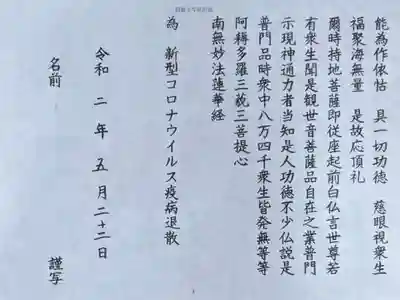 能為作依怙　具一切功徳　慈眼視衆生
福聚海無量　是故応頂礼
爾時持地菩薩即従座起前白仏言世尊若
有衆生聞是観世音菩薩品自在之業普門
示現神通力者当知是人功徳不少仏説是
普門品時衆中八万四千衆生皆発無等等
阿耨多羅三藐三菩提心
南無妙法蓮華経
為　新型コロナウイルス疫病退散
令和　二　年　五　月　二十二日
名前　謹写